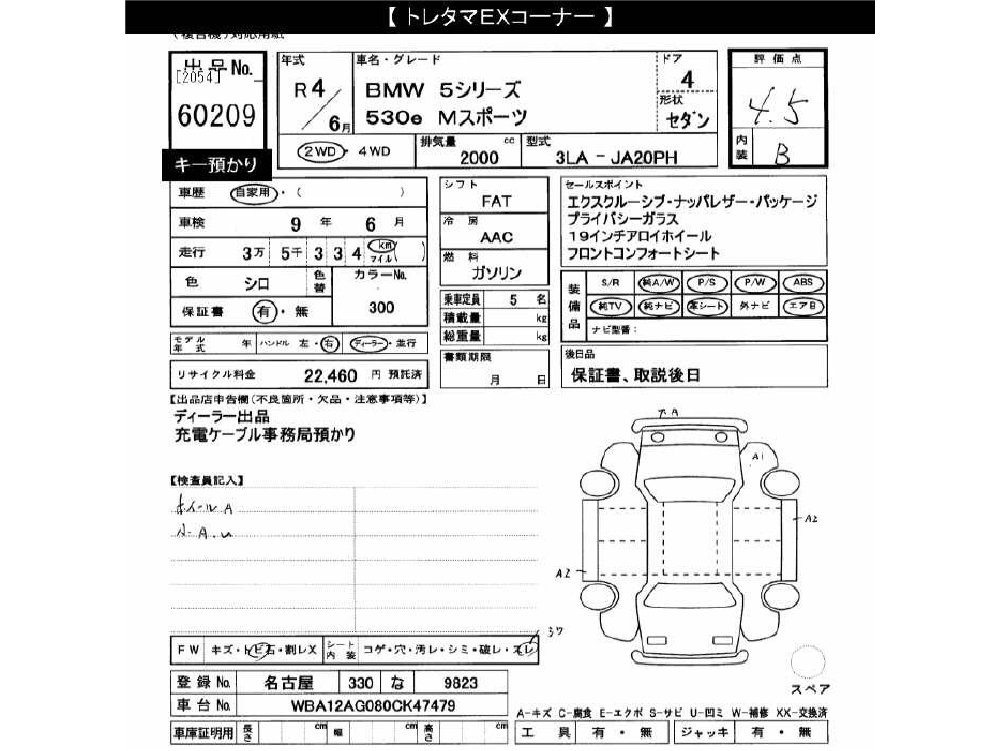 【 トレタマEXコーナー 】
(複合機)対応用紙
出品No.
[2054]
60209
キー預かり
年式
R4/6月
車名・グレード
BMW 5シリーズ
530e Mスポーツ
ドア
4
形状
セダン
2WD・4WD
排気量 2000 cc
型式 3LA - JA20PH
評価点
4.5
内装 B
車歴 自家用・( )
車検 9年 6月
走行 3万 5千 3 3 4 km マイル ( )
色 シロ 色替 カラーNo. 300
保証書 有・無
モデル年式 年 ハンドル 左・右 ディーラー・並行
リサイクル料金 22,460 円 預託済
シフト
FAT
冷房
AAC
燃料
ガソリン
乗車定員 5 名
積載量 kg
総重量 kg
書類期限
月 日
セールスポイント
エクスクルーシブ・ナッパレザー・パッケージ
プライバシーガラス
19インチアロイホイール
フロントコンフォートシート
装備品
S/R 純A/W P/S P/W ABS
純TV 純ナビ 革シート 外ナビ エアB
ナビ型番:
後日品
保証書、取説後日
【出品店申告欄(不良箇所・欠品・注意事項等)】
ディーラー出品
充電ケーブル事務局預かり
【検査員記入】
ホイールA
A
A1
A2
A2
37
FW キズ・トビ石・割レX シート内装 コゲ・穴・汚レ・シミ・破レ・スレ
スペア
登録No. 名古屋 330 な 9823
車台No. WBA12AG080CK47479
A-キズ C-腐食 E-エクボ S-サビ U-凹ミ W-補修 XX-交換済
車庫証明用 長さ cm 幅 cm 高さ cm
工具 有・無 ジャッキ 有・無